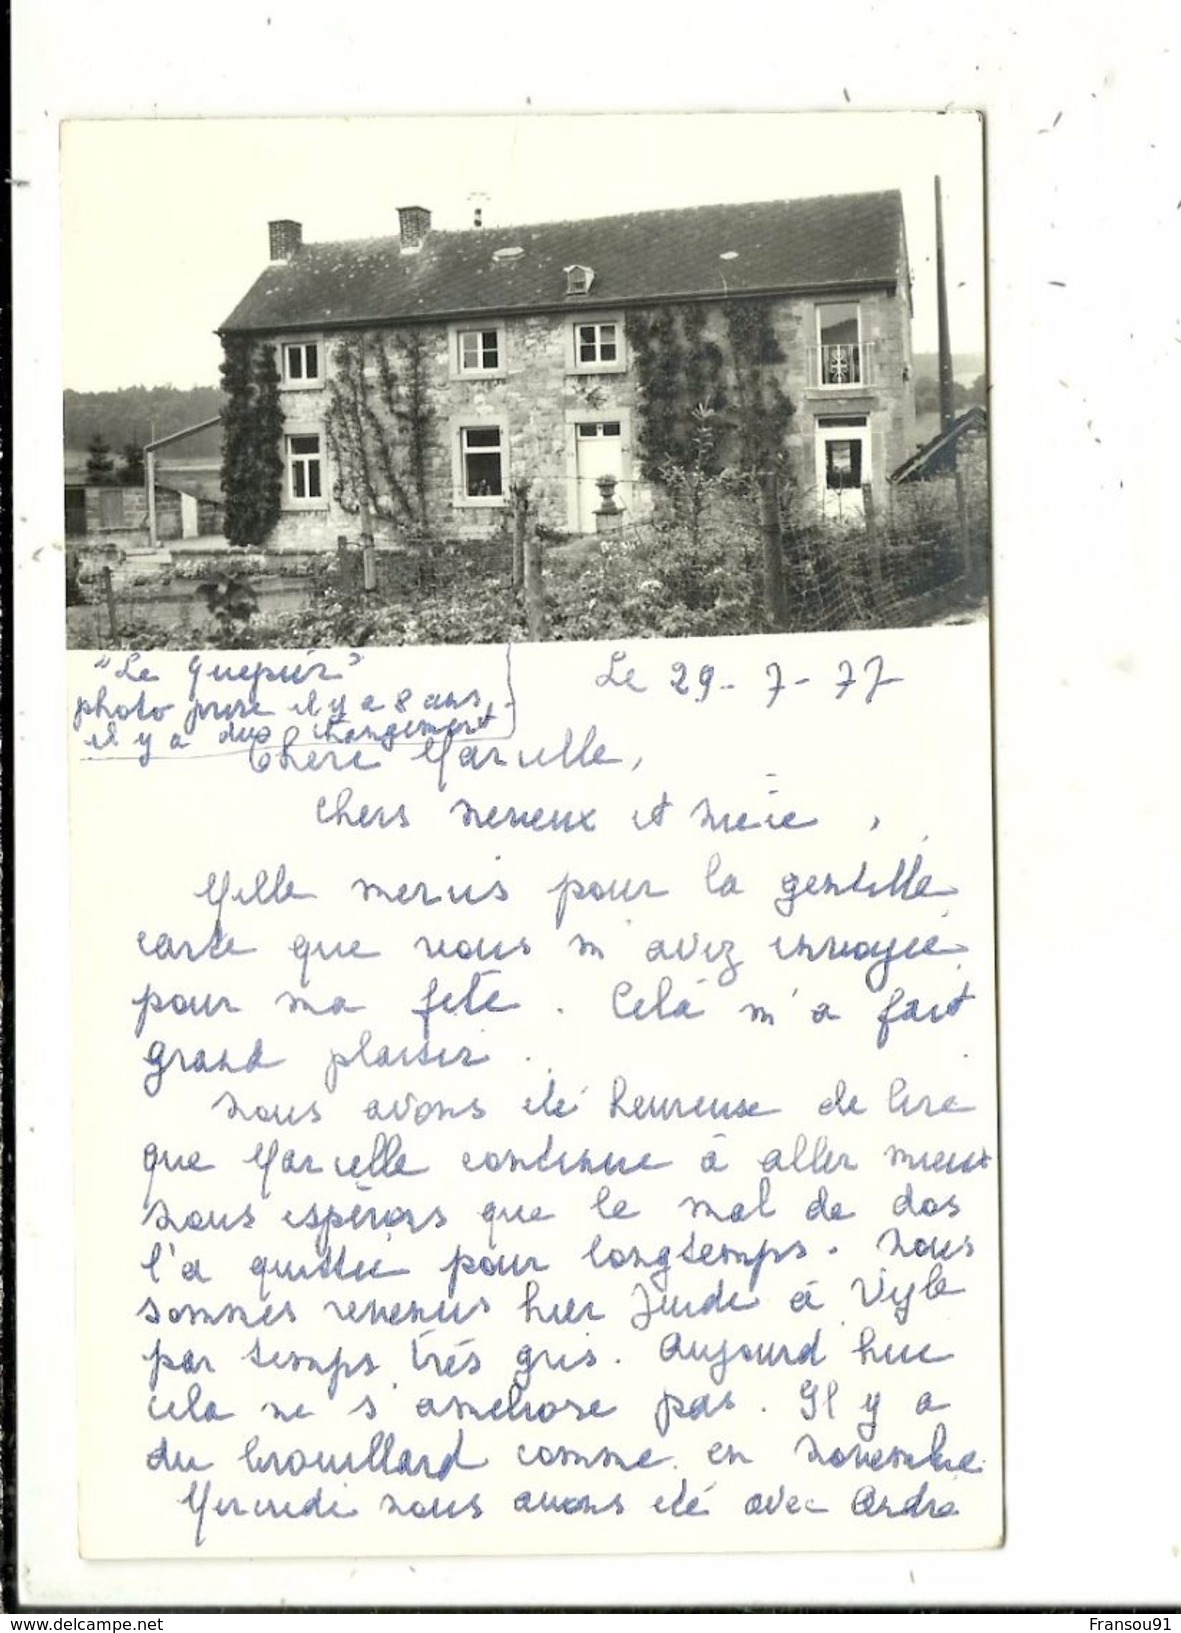 "Le Guepier"
photo prise il y a 8 ans
il y a des changement
Le 29-7-77
Chere Marcelle,
Chers neveux et nièce,
Mille mercis pour la gentille
carte que vous m'avez envoyée
pour ma fête. Celà m'a fait
grand plaisir.
Nous avons été heureuse de lire
que Marcelle continue à aller mieux
nous espérons que le mal de dos
l'a quittée pour longtemps. Nous
sommes revenus hier Jeudi à Vyle
par temps très gris. Aujourd hui
cela ne s'améliore pas. Il y a
du brouillard comme en novembre.
Mercredi nous avons été avec Andre
www.delcampe.net
Fransou91